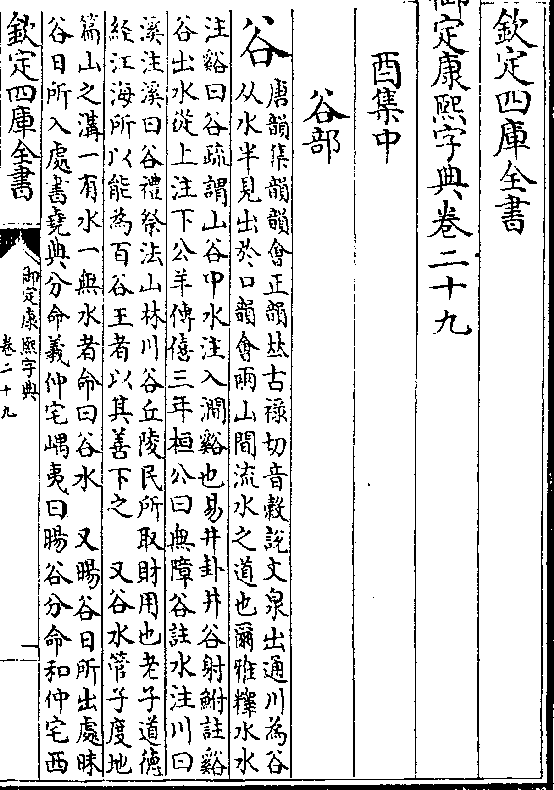 欽定四庫全書
御定康熙字典卷二十九
酉集中
谷部
谷
唐韻集韻韻會正韻𠀤古祿切音縠說文泉出通川為谷
从水半見出於口韻會兩山間流水之道也爾雅釋水水
注谿曰谷疏謂山谷中水注入澗谿也易井卦井谷射鮒註谿
谷出水從上注下公羊傳僖三年桓公曰無障谷註水注川曰
溪注溪曰谷禮祭法山林川谷丘陵民所取財用也老子道德
經江海所以能為百谷王者以其善下之 又谷水管子度地
篇山之溝一有水一無水者命曰谷水 又暘谷日所出處昧
谷日所入處書堯典分命羲仲宅嵎夷曰暘谷分命和仲宅西
欽定四庫全書
御定康熙字典
卷二十九
一